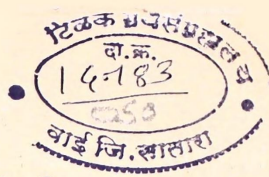 टिळक ग्रंथसंग्रहालय
दा. क्र.
14783
वाई जि. सातारा